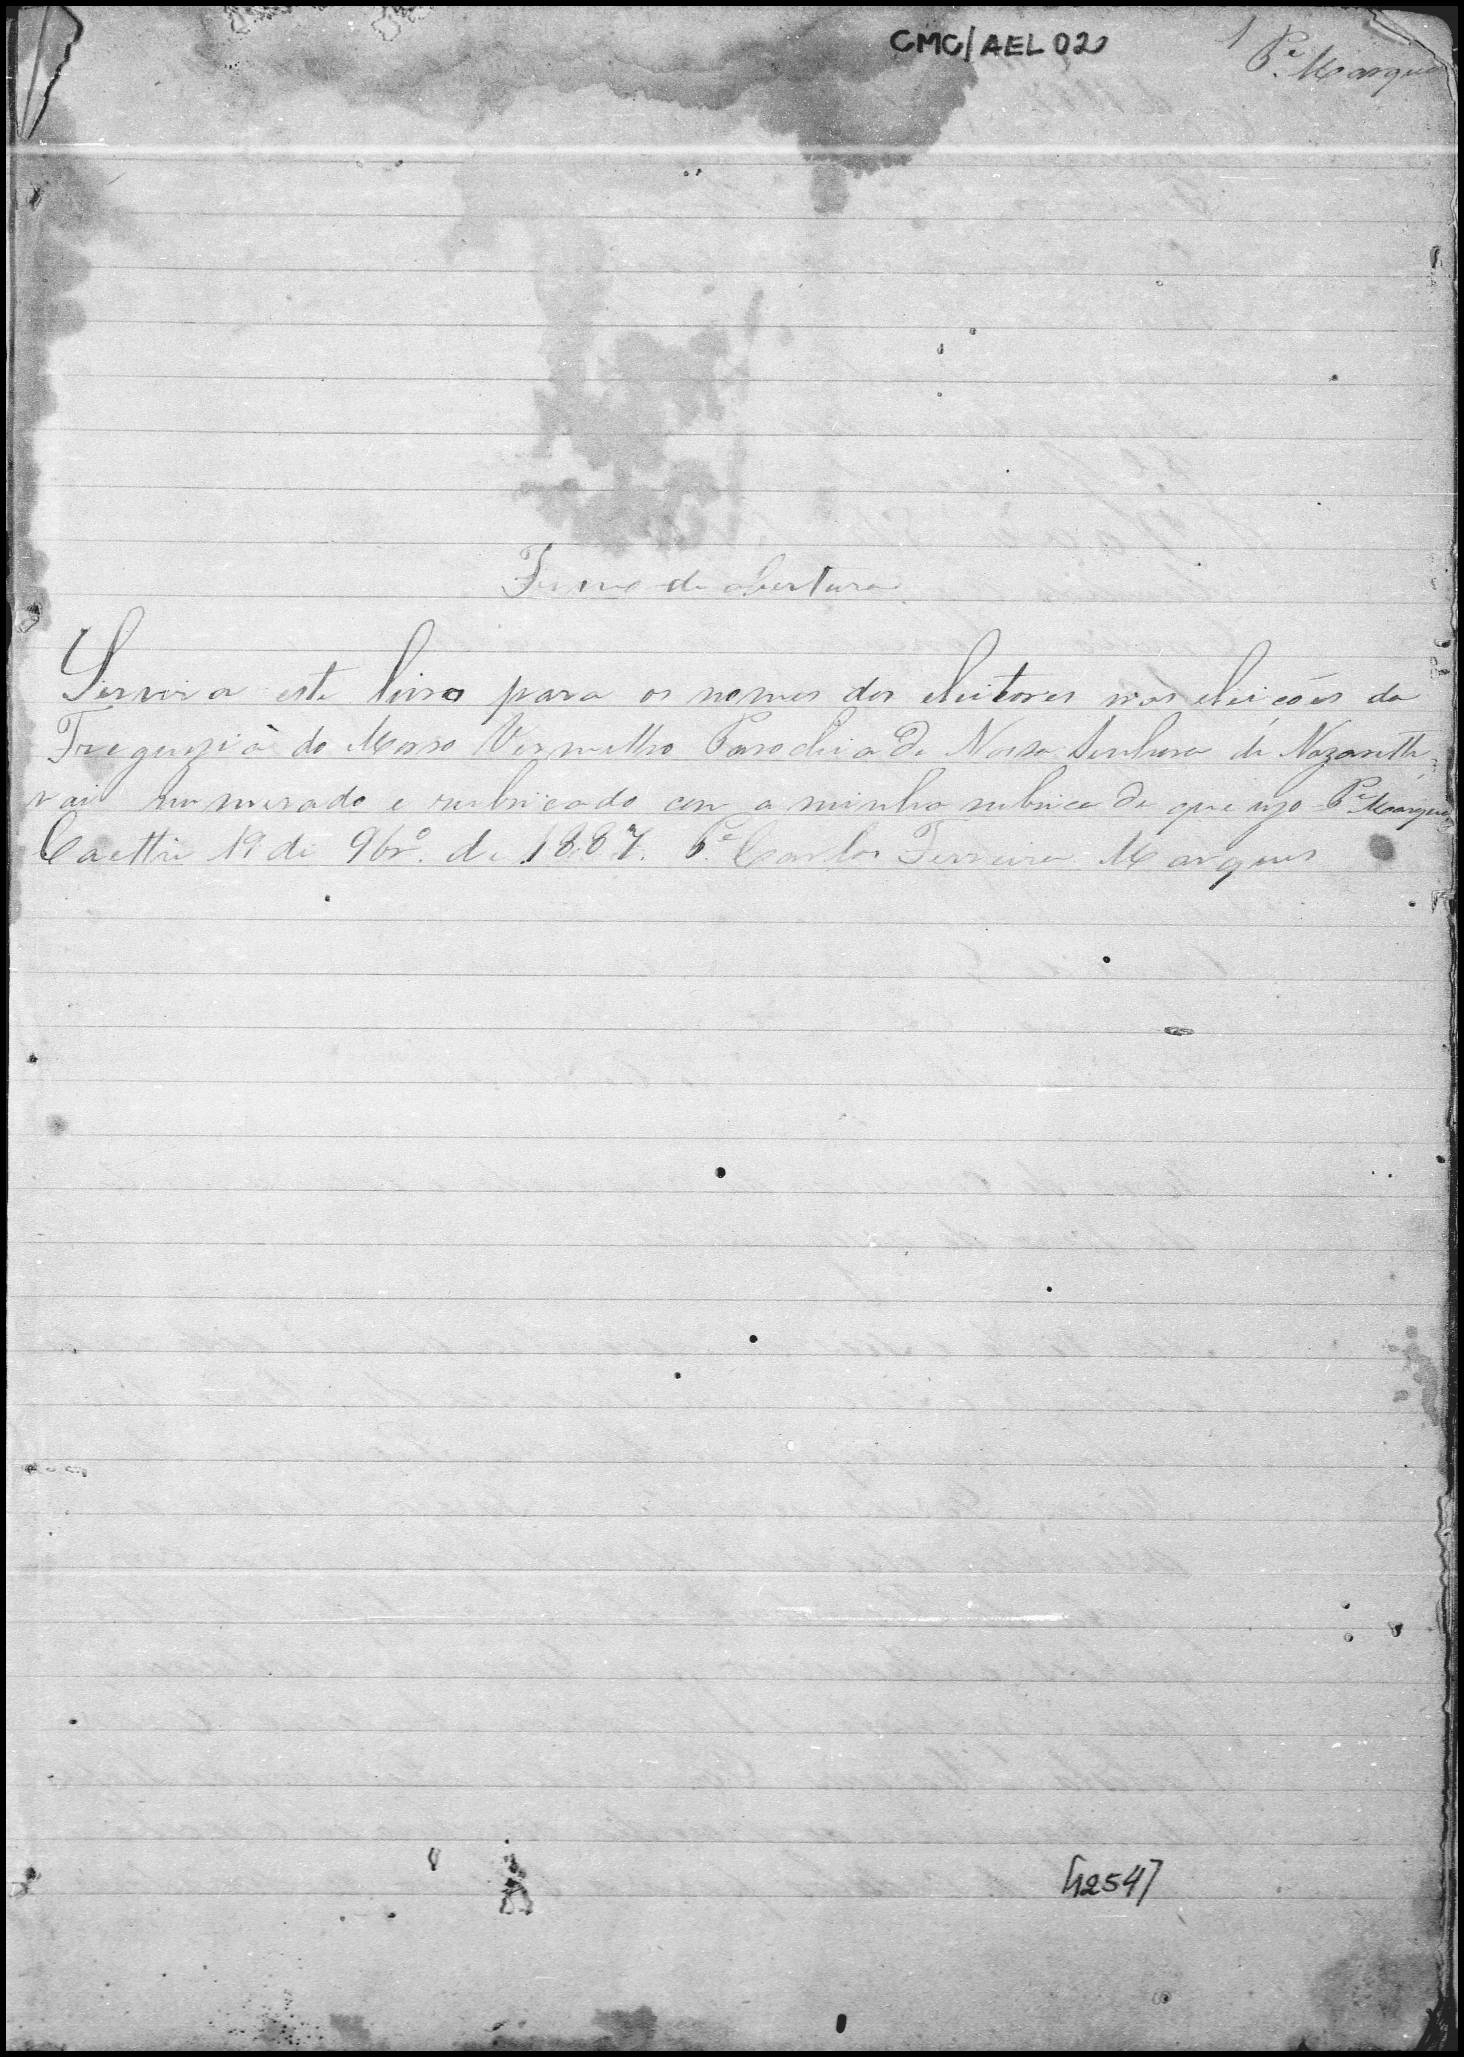 CMC/AEL 020
1 Pe. Marques
Termo de abertura
Servirá este livro para os nomes dos eleitores nas eleições da
Freguezia do Morro Vermelho Parochia de Nossa Senhora de Nazareth,
vai numerado e rubricado com a minha rubrica de que uzo Pe. Marques
Caethé 19 de 9bro. de 1887. Pe. Carlos Ferreira Marques
[1254]